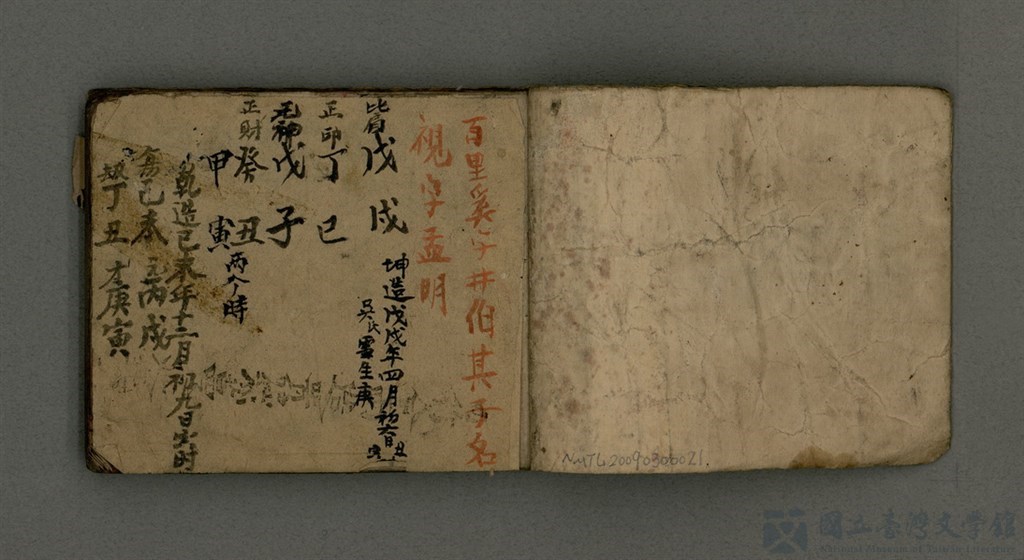 百里奚字井伯其子名
視字孟明
比肩戊戌
坤造戊戌年四月初六日丑
吳氏雲生庚
正印丁巳
元神戊子
正財癸丑
甲寅兩个時
乾造己未年十二月初九日寅時
傷己未 丙戌
丁丑 庚寅
NMTL20090300021.
國立臺灣文學館
National Museum of Taiwan Literature